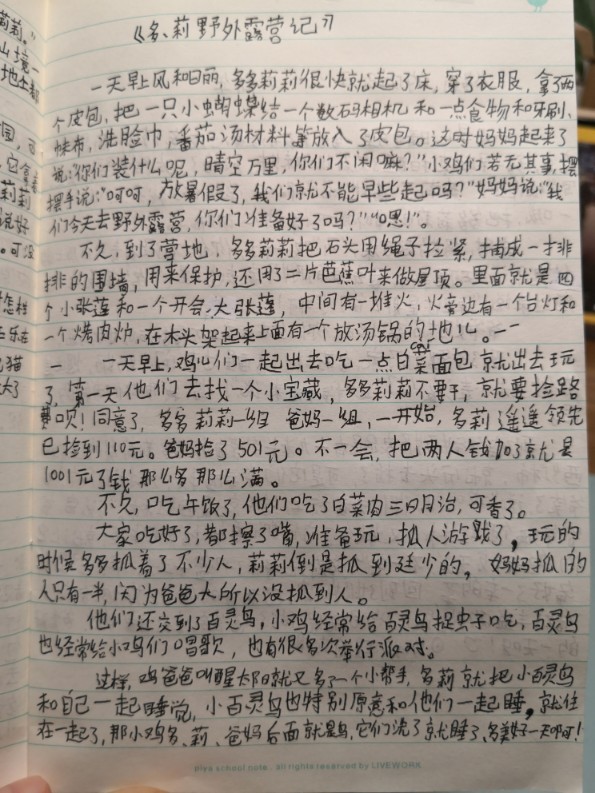 《多、莉野外露营记》
一天早上风和日丽,多多莉莉很快就起了床,穿了衣服,拿了两
个皮包,把一只小蝴蝶结一个数码相机和一点食物和牙刷、
快布,洗脸巾,番茄汤材料等放入了皮包。这时妈妈起来了
说:"你们装什么呢,晴空万里,你们不闲嘛?"小鸡们若无其事,摆
摆手说:"呵呵,放暑假了,我们就不能早些起吗?"妈妈说:"我
们今天去野外露营,你们准备好了吗?""嗯!"。
不久,到了营地,多多莉莉把石头用绳子拉紧,捕成一排
排的围墙,用来保护,还用了二片芭蕉叶来做屋顶。里面就是四
个小张莲和一个开会大张莲,中间有一堆火,火旁边有一个台灯和
一个烤肉炉,在木头架起来上面有一个放汤锅的地儿。一
一 一天早上,鸡儿们一起出去吃一点白菜面包就出去玩
了,第一天他们去找一个小宝藏,多多莉莉不要干,就要捡路
费呗!同意了,多多莉莉一组 爸妈一组,一开始,多莉遥遥领先
已捡到110元。爸妈捡了501元。不一会,把两人钱加了就是
1001元了钱那么多那么满。
不久,吃午饭了,他们吃了白菜肉三日月治,可香了。
大家吃好了,都擦了嘴,准备玩,抓人游戏了,玩的
时候多多抓着了不少人,莉莉倒是抓到廷少的,妈妈抓的
人只有一半,因为爸爸大所以没抓到人。
他们还交到了百灵鸟,小鸡经常给百灵鸟捉虫子吃,百灵鸟
也经常给小鸡们唱歌,也有很多次举行派对。
这样,鸡爸爸叫醒太阳就又多了一个小帮手,多莉就把小百灵鸟
和自己一起睡觉,小百灵鸟也特别原意和他们一起睡,就住
在一起了,那小鸡多、莉、爸妈后面就是鸟,它们洗了就睡了、多美好一天啊!
piya school note. all rights reserved by LIVEWORK